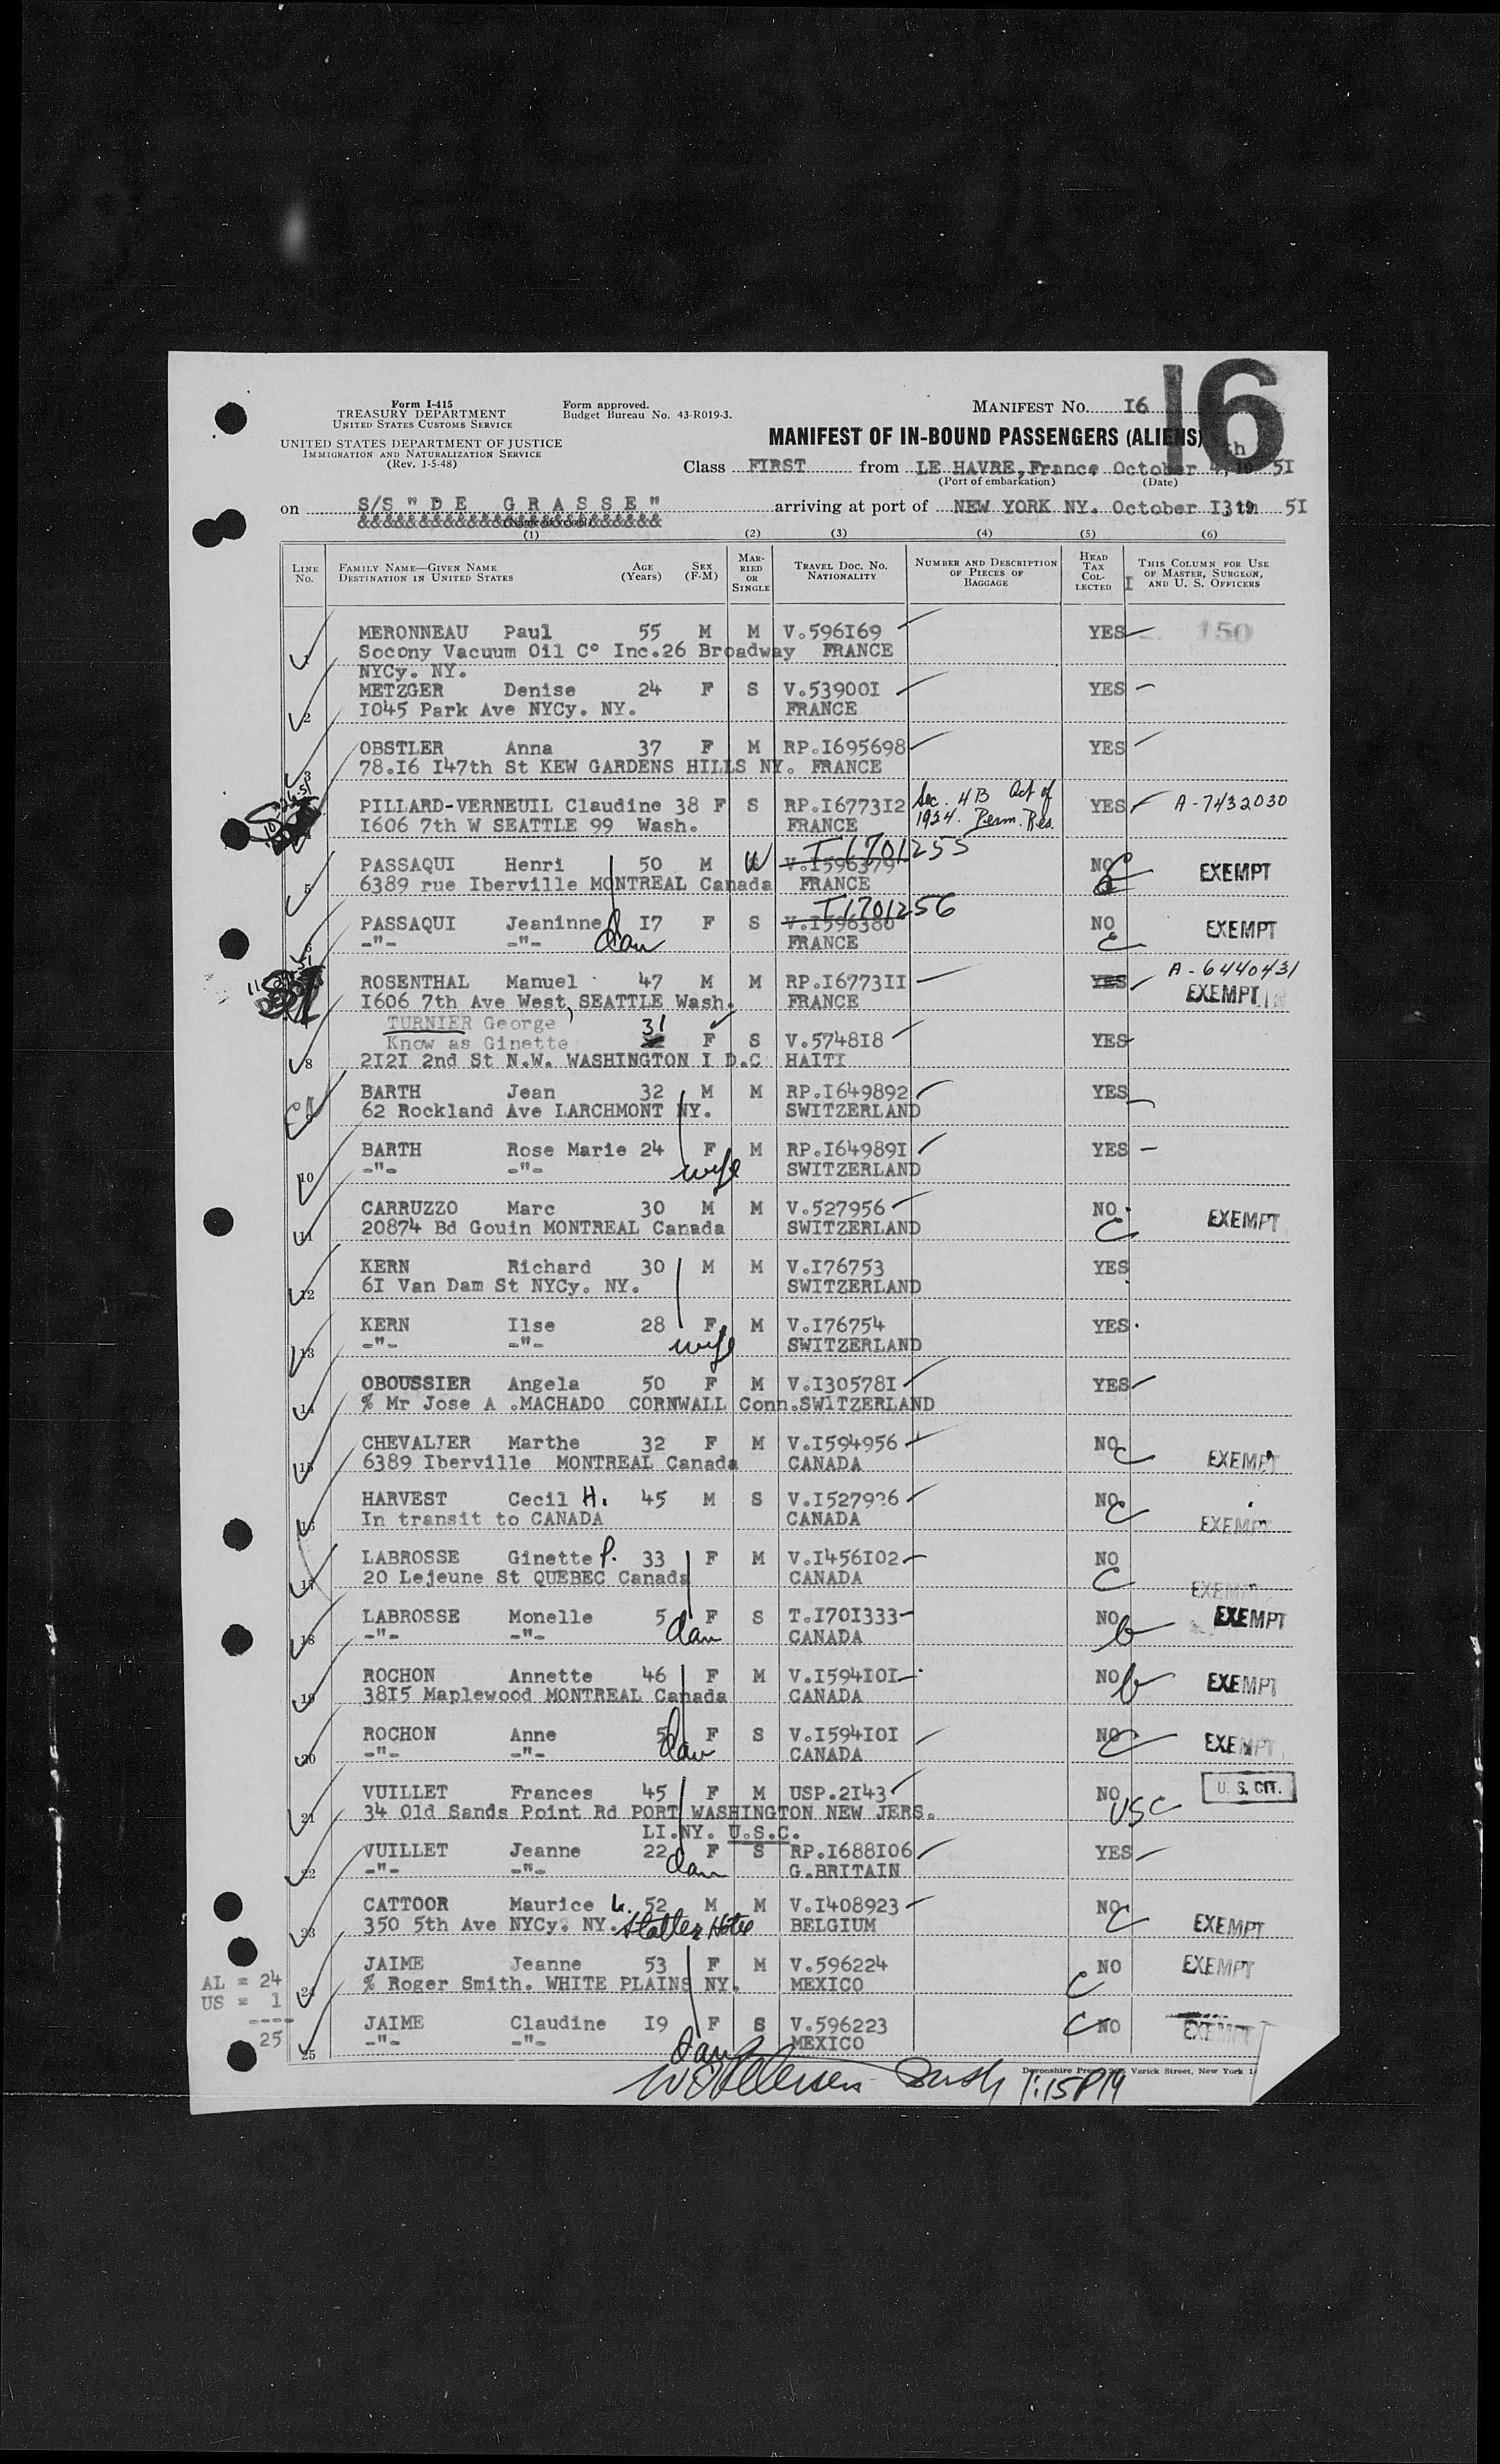 16
Form I-415
TREASURY DEPARTMENT
UNITED STATES CUSTOMS SERVICE
UNITED STATES DEPARTMENT OF JUSTICE
IMMIGRATION AND NATURALIZATION SERVICE
(Rev. 1-5-48)
Form approved.
Budget Bureau No. 43-R019-3.
MANIFEST NO. I6
MANIFEST OF IN-BOUND PASSENGERS (ALIENS)
Class FIRST from LE HAVRE, France, October 4, th 19 5I
(Port of embarkation) (Date)
on S/S "D E G R A S S E" arriving at port of NEW YORK NY. October I3th 19 5I
&&&&&&&&&&&&&&&&&&&&&&&&&&&&&
(1) (2) (3) (4) (5) (6)
LINE No. FAMILY NAME—GIVEN NAME DESTINATION IN UNITED STATES AGE (Years) SEX (F-M) MARRIED OR SINGLE TRAVEL DOC. NO. NATIONALITY NUMBER AND DESCRIPTION OF PIECES OF BAGGAGE HEAD TAX COLLECTED THIS COLUMN FOR USE OF MASTER, SURGEON, AND U. S. OFFICERS
1 MERONNEAU Paul 55 M M V.596I69 YES 150
Socony Vacuum Oil C° Inc.26 Broadway FRANCE
NYCy. NY.
2 METZGER Denise 24 F S V.53900I YES
I045 Park Ave NYCy. NY. FRANCE
3 OBSTLER Anna 37 F M RP.I695698 YES
78.I6 I47th St KEW GARDENS HILLS NY. FRANCE
4 PILLARD-VERNEUIL Claudine 38 F S RP.I6773I2 Sec. 4B Act of YES A-7432030
I606 7th W SEATTLE 99 Wash. FRANCE 1924. Perm. Res.
T1701255
5 PASSAQUI Henri 50 M W V.I596379 NO C EXEMPT
6389 rue Iberville MONTREAL Canada FRANCE
T1701256
6 PASSAQUI Jeaninne I7 F S V.I596380 NO C EXEMPT
-"- -"- dau FRANCE
ROSENTHAL Manuel 47 M M RP.I6773II YES A-6440431
I606 7th Ave West, SEATTLE Wash. FRANCE EXEMPT
TURNIER George 31
Know as Ginette F S V.5748I8 YES
8 2I2I 2nd St N.W. WASHINGTON I D.C HAITI
BARTH Jean 32 M M RP.I649892 YES
62 Rockland Ave LARCHMONT NY. SWITZERLAND
10 BARTH Rose Marie 24 F M RP.I64989I YES
-"- -"- wife SWITZERLAND
11 CARRUZZO Marc 30 M M V.527956 NO C EXEMPT
20874 Bd Gouin MONTREAL Canada SWITZERLAND
12 KERN Richard 30 M M V.I76753 YES
6I Van Dam St NYCy. NY. SWITZERLAND
13 KERN Ilse 28 F M V.I76754 YES
-"- -"- wife SWITZERLAND
14 OBOUSSIER Angela 50 F M V.I30578I YES
% Mr Jose A .MACHADO CORNWALL Conn. SWITZERLAND
15 CHEVALIER Marthe 32 F M V.I594956 NO C EXEMPT
6389 Iberville MONTREAL Canada CANADA
16 HARVEST Cecil H. 45 M S V.I527926 NO C EXEMPT
In transit to CANADA CANADA
17 LABROSSE Ginette P. 33 F M V.I456I02 NO C EXEMPT
20 Lejeune St QUEBEC Canada CANADA
18 LABROSSE Monelle 5 F S T.I70I333 NO b EXEMPT
-"- -"- dau CANADA
19 ROCHON Annette 46 F M V.I594I0I NO b EXEMPT
38I5 Maplewood MONTREAL Canada CANADA
20 ROCHON Anne 5 F S V.I594I0I NO C EXEMPT
-"- -"- dau CANADA
21 VUILLET Frances 45 F M USP.2I43 NO USC U. S. CIT.
34 Old Sands Point Rd PORT WASHINGTON NEW JERS.
LI.NY. U.S.C.
22 VUILLET Jeanne 22 F S RP.I688I06 YES
-"- -"- dau G.BRITAIN
23 CATTOOR Maurice L. 52 M M V.I408923 NO C EXEMPT
350 5th Ave NYCy. NY. Statler Hotel BELGIUM
24 JAIME Jeanne 53 F M V.596224 C NO EXEMPT
% Roger Smith. WHITE PLAINS NY. MEXICO
25 JAIME Claudine I9 F S V.596223 C NO EXEMPT
-"- -"- dau MEXICO
AL = 24
US = 1
----
25
1:15PM
Devonshire Press Varick Street, New York 1